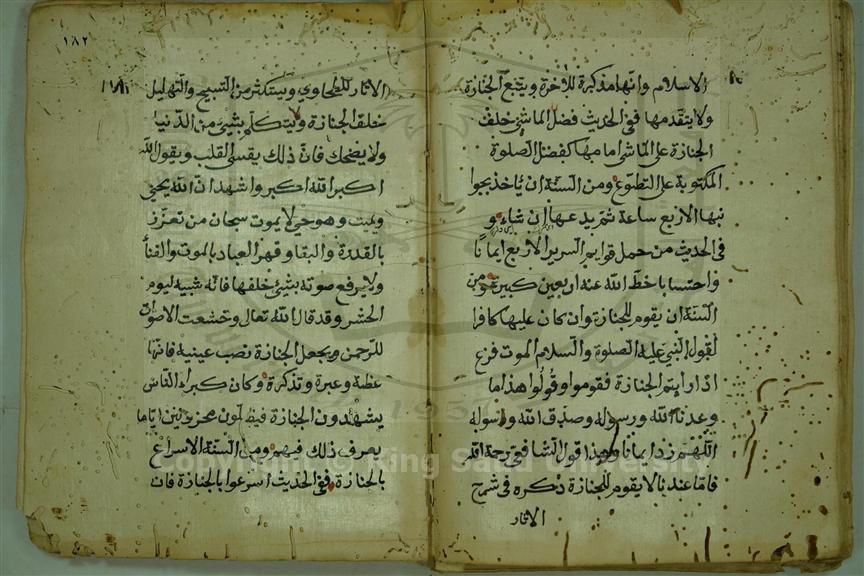 الاسلام وانها مذكرة للآخرة ويتبع الجنازة
ولا يتقدمها ففي الحديث فضل الماشي خلف
الجنازة على الماشي امامها كفضل الصلوة
المكتوبة على التطوع ومن السنة ان ياخذ بجوا
نبها الاربع ساعة ثم يزيد عها ان شاء و
في الحديث من حمل قوايم السرير الاربع ايمانا
واحتسابا خط الله عنه اربعين كبيرة ومن
السنة ان يقوم للجنازة وان كان عليها كافرا
لقول النبي عليه الصلوة والسلام الموت فزع
اذا رايتم الجنازة فقوموا وقولوا هذا ما
وعدنا الله ورسوله وصدق الله ورسوله
اللهم زد ايمانا وهذا قول الشافعي رحمة الله
فاما عندنا لا يقوم للجنازة ذكره في شرح
الاثار
١٨٢
١٨١
الاثار للطحاوي ويستكثر من التسبيح والتهليل
خلف الجنازة ولا يتكلم بشيئ من الدنيا
ولا يضحك فان ذلك يقسي القلب ويقول الله
اكبر الله اكبر واشهد ان الله يحيى
ويميت وهو حي لا يموت سبحان من تعزز
بالقدرة والبقا وقهر العباد بالموت والفنا
ولا يرفع صوته بشيئ خلفها فانه شبيه ليوم
الحشر وقد قال الله تعالى وخشعت الاصوات
للرحمن ويجعل الجنازة نصب عينيه فانها
عظة وعبرة وتذكرة وكان كبراء الناس
يشهدون الجنازة فيظلون محزونين اياما
يعرف ذلك فيهم ومن السنة الاسراع
بالجنازة ففي الحديث اسرعوا بالجنازة فان
Copyright © King Saud University
1957